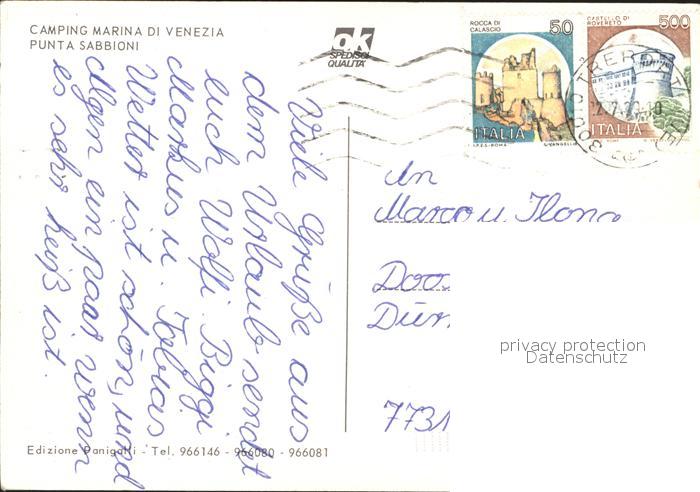 CAMPING MARINA DI VENEZIA
PUNTA SABBIONI
ok
SPEDISCI
QUALITA'
ROCCA DI
CALASCIO
50
ITALIA
I.P.Z.S.-ROMA
CASTELLO DI
ROVERETO
500
ITALIA
Viele Grüße aus
dem Urlaub sendet
euch Wolfi, Biggi
Markus u. Tobias
Wetter ist schön, und
ein paar wenn
es sehr heiß ist.
An
Marco u. Ilona
Doo
Dür
7731
privacy protection
Datenschutz
Edizione Panigalli - Tel. 966146 - 966080 - 966081